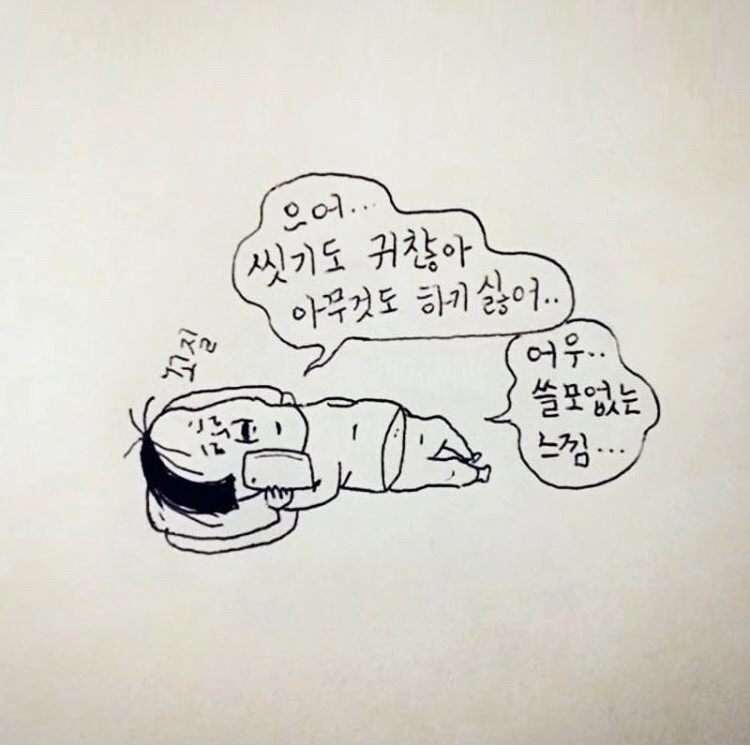 으어...
씻기도 귀찮아
아무것도 하기 싫어..
꼬질
어우..
쓸모없는
느낌...